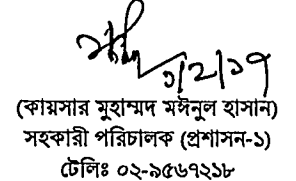 ১/২/১৭
(কায়সার মুহাম্মদ মঈনুল হাসান)
সহকারী পরিচালক (প্রশাসন-১)
টেলিঃ ০২-৯৫৬৭২১৮